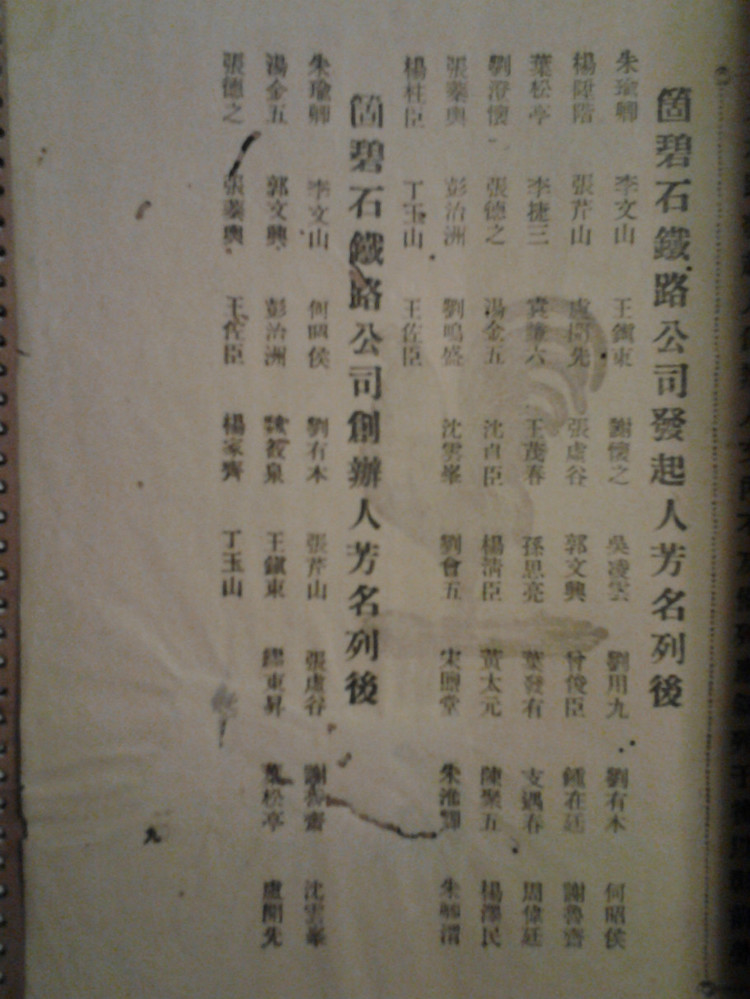 箇碧石鐵路公司發起人芳名列後
朱瑜卿 李文山 王鎭東 謝懷之 吳凌雲 劉用九 劉有木 何昭侯
楊陞階 張芹山 盧開先 張虛谷 郭文興 曾俊臣 鍾在廷 謝魯齋
葉松亭 李捷三 王茂春 孫思亮 葉發有 支遇春 周偉廷
劉澄懷 張德之 湯金五 沈直臣 楊清臣 黃太元 陳聚五 楊澤民
張藻輿 彭治洲 劉鳴盛 沈雲峯 劉會五
楊柱臣 丁玉山 王佐臣
箇碧石鐵路公司創辦人芳名列後
朱瑜卿 李文山 何昭侯 劉有木 張芹山 張虛谷 謝魯齋 沈雲峯
湯金五 郭文興 彭治洲 王鎭東 繆東昇 葉松亭 盧開先
張德之 張藻輿 王佐臣 楊家齊 丁玉山
九